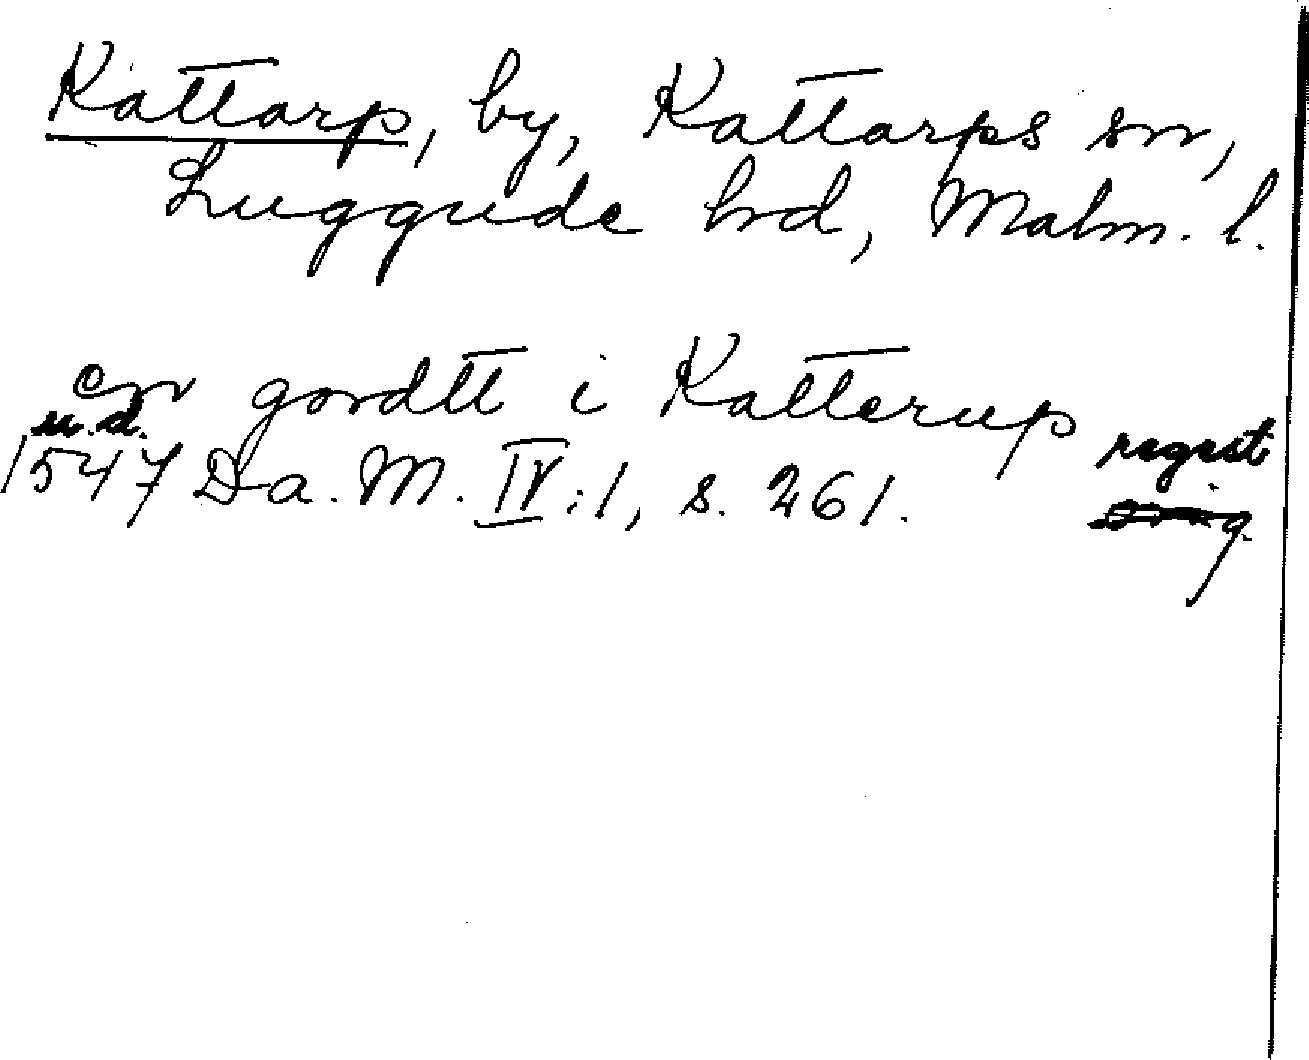 Kattarp, by, Kattarps sn,
Luggude hrd, Malm. l.
en gordtt i Katterup
u.d. regest
1547 Da. M. IV:1, s. 261.